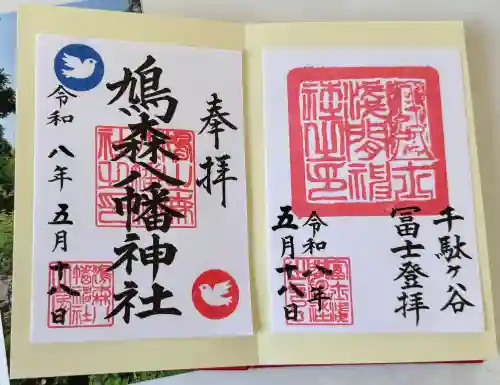 奉拝
鳩森八幡神社
令和八年五月十八日
千駄ヶ谷
冨士登拝
令和八年
五月十八日